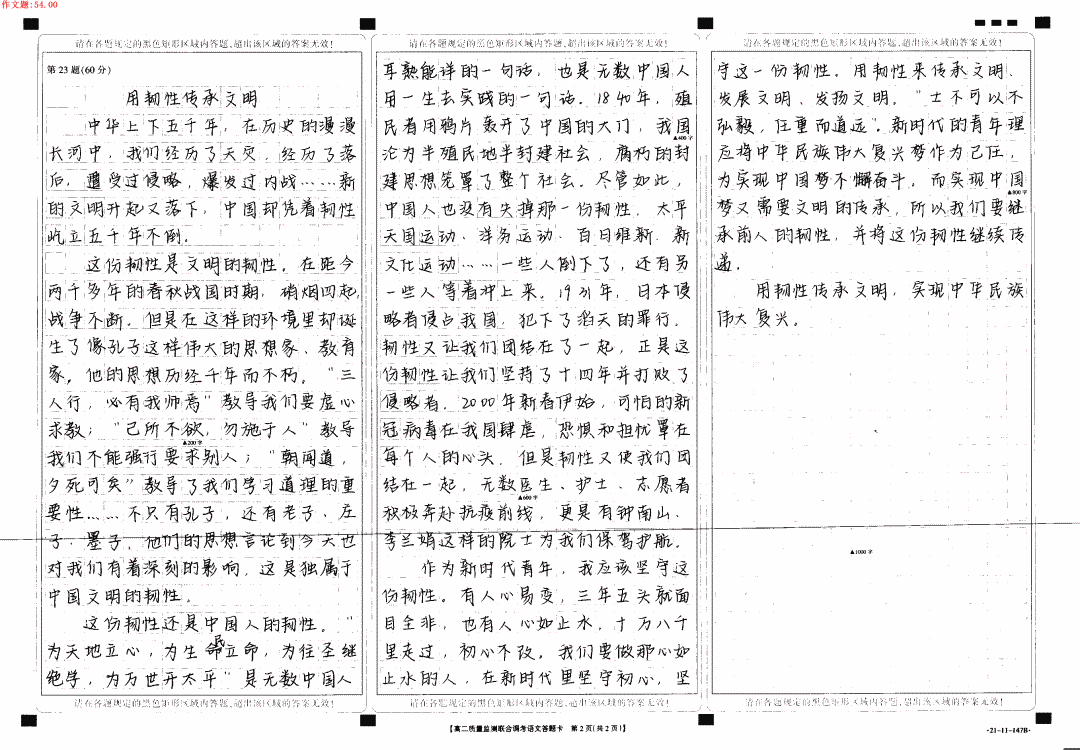 作文题:54.00
请在各题规定的黑色矩形区域内答题,超出该区域的答案无效!
第23题(60分)
用韧性传承文明
中华上下五千年，在历史的漫漫
长河中，我们经历了天灾，经历了落
后，遭受过侵略，爆发过内战……新
的文明升起又落下，中国却凭着韧性
屹立五千年不倒.
这份韧性是文明的韧性。在距今
两千多年的春秋战国时期，硝烟四起，
战争不断。但是在这样的环境里却诞
生了像孔子这样伟大的思想家、教育
家。他的思想历经千年而不朽。“三
人行，必有我师焉”教导我们要虚心
求教；“己所不欲，勿施于人”教导
▲200字
我们不能强行要求别人；“朝闻道，
夕死可矣”教导了我们学习道理的重
要性……不只有孔子，还有老子、庄
子、墨子，他们的思想言论到今天也
对我们有着深刻的影响，这是独属于
中国文明的韧性。
这份韧性还是中国人的韧性。“
为天地立心，为生民立命，为往圣继
绝学，为万世开太平”是无数中国人
请在各题规定的黑色矩形区域内答题,超出该区域的答案无效!
请在各题规定的黑色矩形区域内答题,超出该区域的答案无效!
耳熟能详的一句话，也是无数中国人
用一生去实践的一句话。1840年，殖
民者用鸦片轰开了中国的大门，我国
▲400字
沦为半殖民地半封建社会，腐朽的封
建思想笼罩了整个社会。尽管如此，
中国人也没有失掉那一份韧性，太平
天国运动、洋务运动、百日维新、新
文化运动……一些人倒下了，还有另
一些人等着冲上来。1931年，日本侵
略者侵占我国，犯下了滔天的罪行.
韧性又让我们团结在了一起，正是这
份韧性让我们坚持了十四年并打败了
侵略者。2000年新春伊始，可怕的新
冠病毒在我国肆虐，恐惧和担忧罩在
每个人的心头，但是韧性又使我们团
结在一起，无数医生、护士、志愿者
▲600字
积极奔赴抗疫前线，更是有钟南山、
李兰娟这样的院士为我们保驾护航。
作为新时代青年，我应该坚守这
份韧性。有人心易变，三年五头就面
目全非，也有人心如止水，十万八千
里走过，初心不改。我们要做那心如
止水的人，在新时代里坚守初心，坚
请在各题规定的黑色矩形区域内答题,超出该区域的答案无效!
请在各题规定的黑色矩形区域内答题,超出该区域的答案无效!
守这一份韧性。用韧性来传承文明、
发展文明、发扬文明。“士不可以不
弘毅，任重而道远”。新时代的青年理
应将中华民族伟大复兴梦作为己任，
为实现中国梦不懈奋斗，而实现中国
▲800字
梦又需要文明的传承，所以我们要继
承前人的韧性，并将这份韧性继续传
递。
用韧性传承文明，实现中华民族
伟大复兴。
▲1000字
请在各题规定的黑色矩形区域内答题,超出该区域的答案无效!
【高二质量监测联合调考语文答题卡 第2页(共2页)】
·21-11-147B·